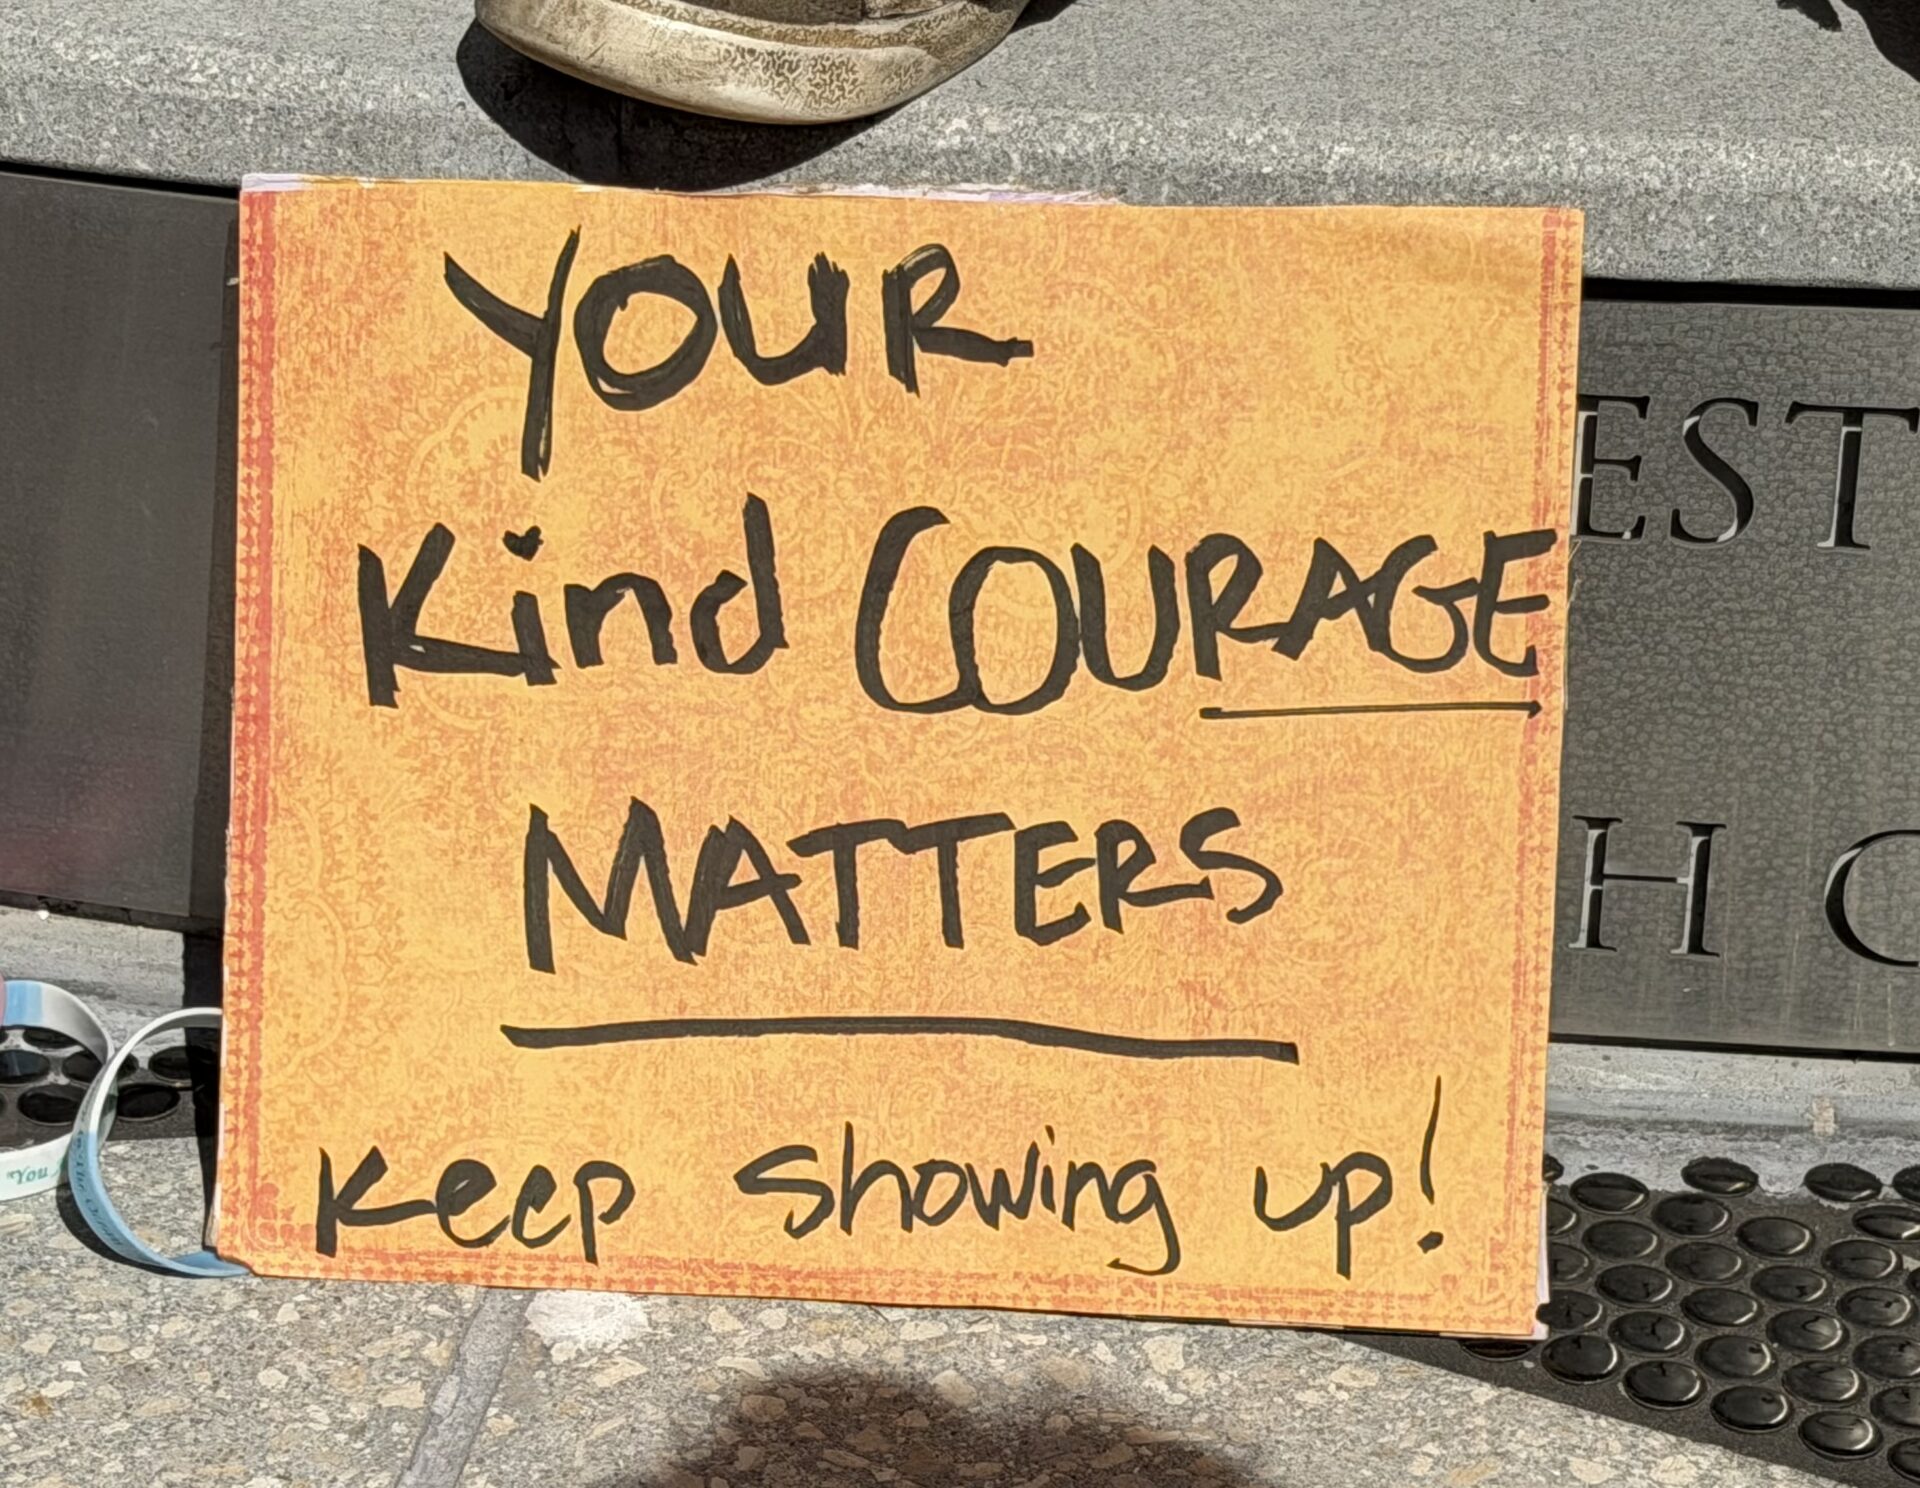 YOUR
Kind COURAGE
MATTERS
Keep showing up!
EST
H
"You